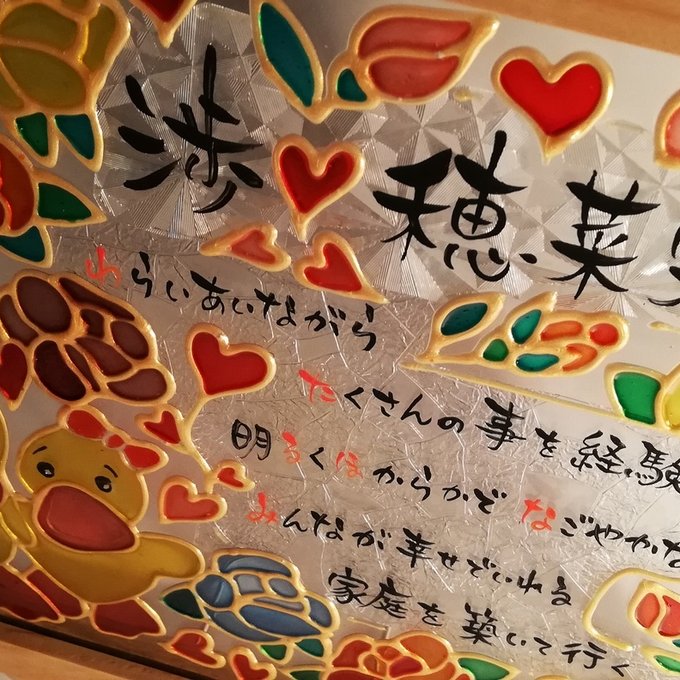 渉 穂菜
わらいあいながら
たくさんの事を経験
明るくほがらかで なごやかな
みんなが幸せでいれる
家庭を築いて行く